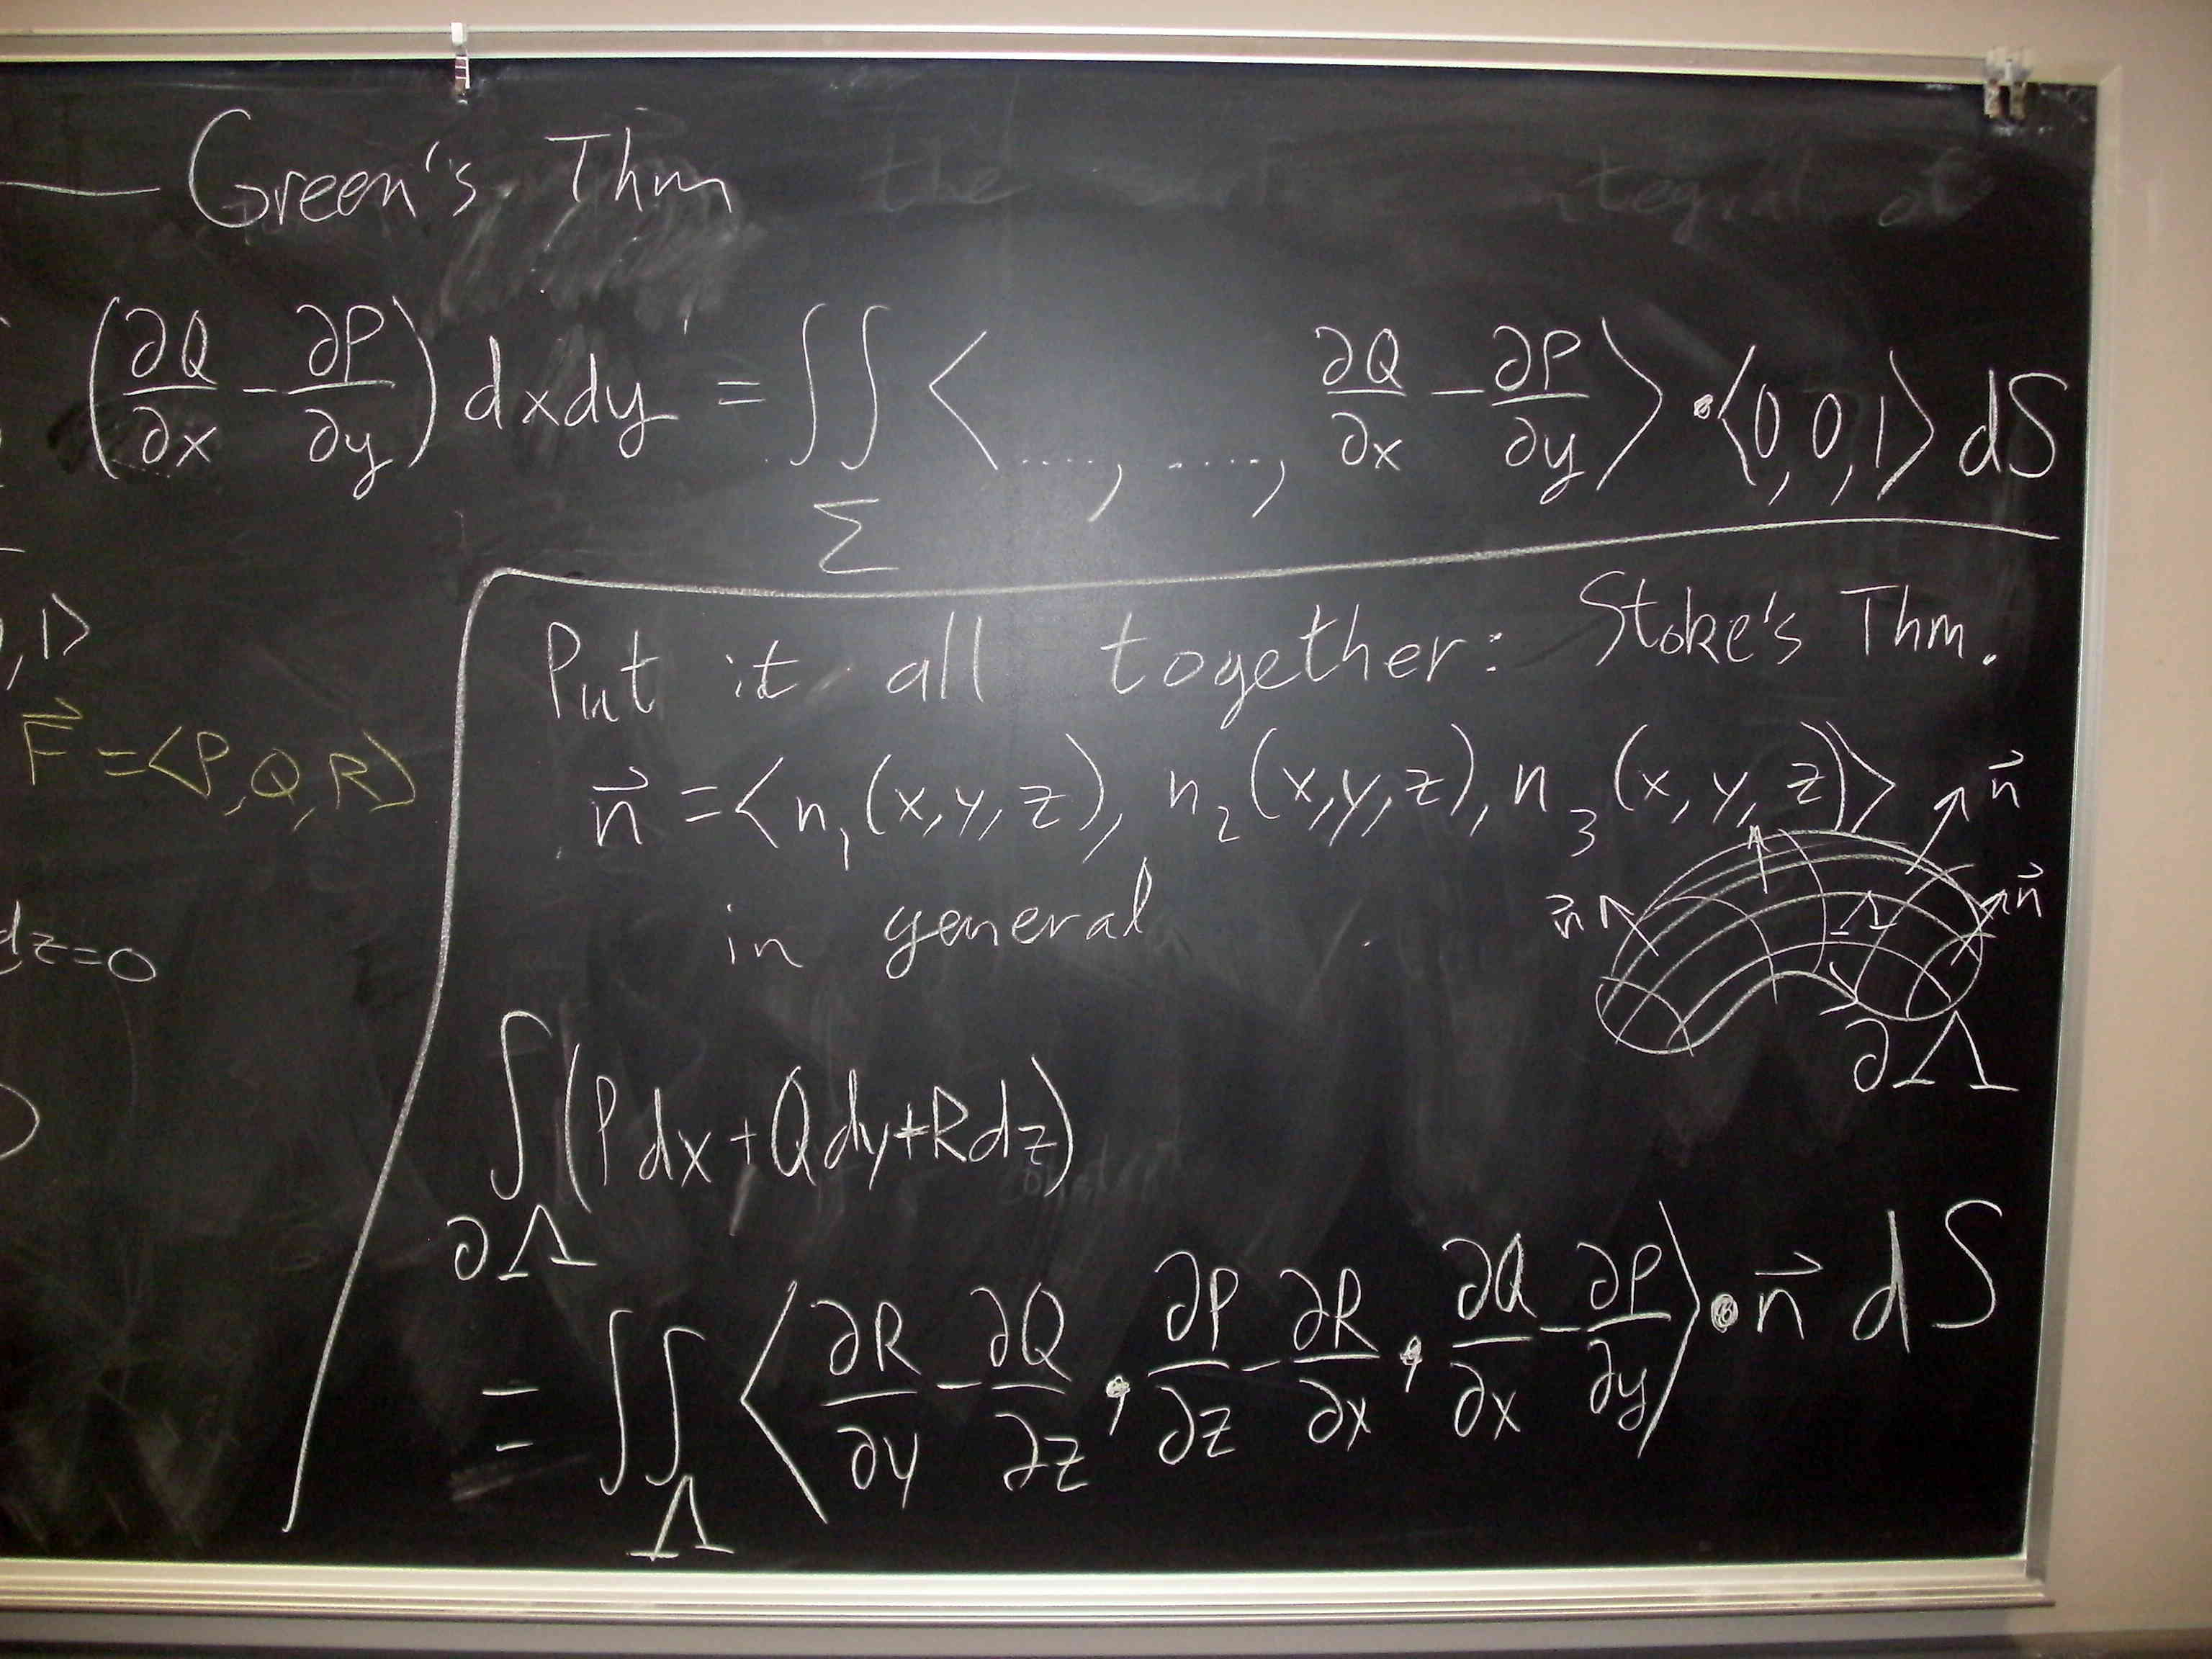 Green's Thm
(∂Q/∂x - ∂P/∂y) dxdy = ∬_Σ < ...., ...., ∂Q/∂x - ∂P/∂y > • <0,0,1> dS
, 1>
Put it all together: Stoke's Thm.
F⃗ = <P, Q, R>
n⃗ = < n₁(x,y,z), n₂(x,y,z), n₃(x,y,z) >
in general
n⃗
n⃗
n⃗
Λ
∂Λ
dz=0
∫_∂Λ (Pdx + Qdy + Rdz)
= ∬_Λ < ∂R/∂y - ∂Q/∂z , ∂P/∂z - ∂R/∂x , ∂Q/∂x - ∂P/∂y > • n⃗ dS